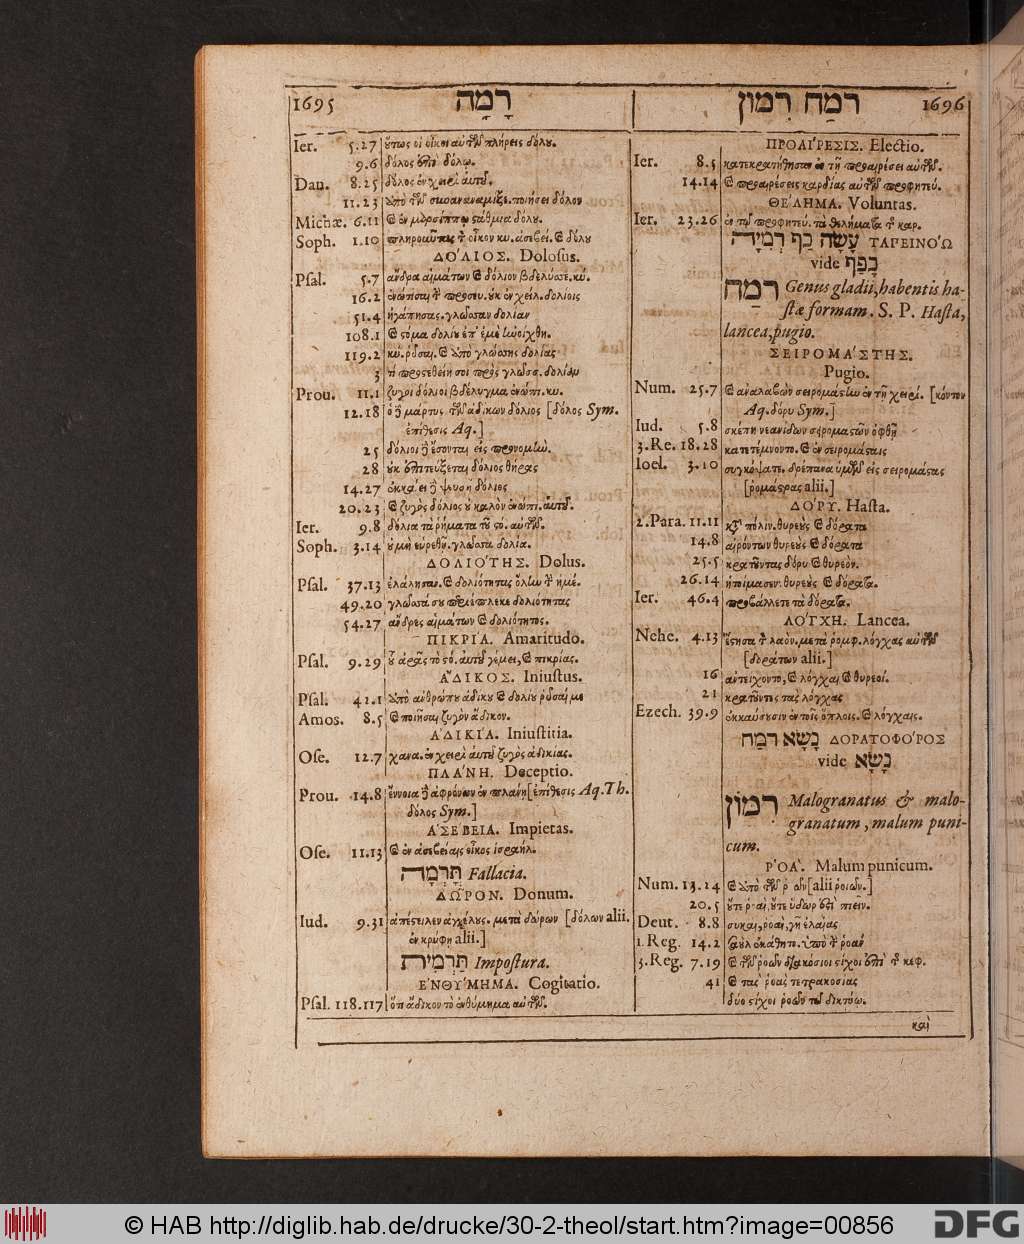 1695 רָמָה
Ier. 5.27 ὅπως οἱ οἶκοι αὐτῶν πλήρεις δόλου.
9.6 δόλος ἐπὶ δόλῳ.
Dan. 8.25 δόλος ἐν χειρὶ αὐτοῦ.
11.23 ποιήσει δόλον
Michæ. 6.11 δόλου.
Soph. 1.10 οἶκον κυ. δόλου
ΔΟ´ΛΙΟΣ. Dolosus.
Psal. 5.7 ἄνδρα αἱμάτων καὶ δόλιον βδελύσσε. κύ.
16.2 χείλ. δολίοις
51.4 ἠγάπησας. γλῶσσαν δολίαν
108.1 καὶ στόμα δολίου ἐπ' ἐμὲ
119.2 κύ. ῥῦσαι. καὶ ἀπὸ γλώσσης δολίας
3 τί προςτεθείη σοι πρὸς γλῶσσ. δολίαν
Prou. 11.1 ζυγοὶ δόλιοι βδέλυγμα ἐνώπι. κυ.
12.18 ὁ δὲ μάρτυς τῶν ἀδίκων δόλιος [δόλος Sym.
ἐπίθεσις Aq.]
25 δόλιοι δὲ ἔσονται εἰς προνομίω.
28 οὐκ ἐπιτεύξεται δόλιος θήρας
14.27 ἐκκαίει δὲ ψευδῆ δόλιος
20.23 καὶ ζυγὸς δόλιος οὐ καλὸν ἐνώπι. αὐτοῦ.
Ier. 9.8 δόλια τὰ ῥήματα τοῦ στό. αὐτῶν.
Soph. 3.14 οὐ μὴ εὑρεθῇ. γλῶσσα δολία.
ΔΟΛΙΟ´ΤΗΣ. Dolus.
Psal. 37.13 ἐλάλησαν. καὶ δολιότητας ὅλίω τὴν ἡμέ.
49.20 γλῶσσά σου περιέπλεκε δολιότητας
54.27 ἄνδρες αἱμάτων καὶ δολιότητος.
ΠΙΚΡΙ´Α. Amaritudo.
Psal. 9.29 οὗ ἀρᾶς τὸ στό. αὐτοῦ γέμει, καὶ πικρίας.
Α῎ΔΙΚΟΣ. Iniustus.
Psal. 42.1 ἀπὸ ἀνθρώπου ἀδίκου καὶ δολίου ῥῦσαί με
Amos. 8.5 καὶ ποιῆσαι ζυγὸν ἄδικον.
Α᾿ΔΙΚΙ´Α. Iniustitia.
Ose. 12.7 χανα. ἐν χειρὶ αὐτοῦ ζυγὸς ἀδικίας.
ΠΛΑ´ΝΗ. Deceptio.
Prou. 14.8 ἔννοια δὲ ἀφρόνων ἐν πλάνῃ [ἐπίθεσις Aq. Th.
δόλος Sym.]
Α᾿ΣΕ´ΒΕΙΑ. Impietas.
Ose. 11.13 καὶ ἐν ἀσεβείαις οἶκος ἰσραήλ.
תָּרְמָה Fallacia.
ΔΩ῀ΡΟΝ. Donum.
Iud. 9.31 ἀπέστειλεν ἀγγέλους. μετὰ δώρων [δόλων alii.
ἐν κρύφῃ alii.]
תַּרְמִית Impostura.
Ε᾿ΝΘΥ´ΜΗΜΑ. Cogitatio.
Psal. 118.117 ὅτι ἄδικον τὸ ἐνθύμημα αὐτῶν.
רֹמַח רִמּוֹן 1696
ΠΡΟΑΙ´ΡΕΣΙΣ. Electio.
Ier. 8.5 κατεκρατήθησαν ἐν τῇ προαιρέσει αὐτῶν.
14.14 καὶ προαιρέσεις καρδίας αὐτῶν προφητεύ.
ΘΕ´ΛΗΜΑ. Voluntas.
Ier. 23.26 ἐν τῷ προφητεύ. τὰ θελήματα τῆς καρ.
עָשָׂה כַף רְמִיָּה ΤΑΠΕΙΝΟ´Ω
vide כָּפַף
רֹמַח Genus gladii, habentis ha-
stæ formam. S. P. Hasta,
lancea, pugio.
ΣΕΙΡΟΜΑ´ΣΤΗΣ.
Pugio.
Num. 25.7 καὶ ἀναλαβὼν σειρομάστω ἐν τῇ χειρί. [κόντον
Aq. δόρυ Sym.]
Iud. 5.8 σκέπη νεανίδων σιρομαστῶν ὀφθῇ
3.Re. 18.28 κατετέμνοντο. καὶ ἐν σειρομάσταις
Ioel. 3.10 συγκόψατε. δρέπανα ὑμῶν εἰς σειρομάστας
[ῥομάστρας alii.]
ΔΟ´ΡΥ. Hasta.
2.Para. 11.11 κατὰ πόλιν. θυρεοὺς καὶ δόρατα
14.8 αἰρόντων θυρεοὺς καὶ δόρατα
25.5 κρατοῦντας δόρυ καὶ θυρεόν.
26.14 ἡτοίμασεν. θυρεοὺς καὶ δόρατα.
Ier. 46.4 προβάλλετε τὰ δόρατα.
ΛΟ´ΓΧΗ. Lancea.
Nehe. 4.13 ἔστησα τὸν λαὸν. μετὰ ῥομφ. λόγχας αὐτῶν
[δοράτων alii.]
16 ἀντείχοντο, καὶ λόγχαι καὶ θυρεοί.
21 κρατοῦντες τὰς λόγχας
Ezech. 39.9 ἐκκαύσουσιν ἐν τοῖς ὅπλοις. καὶ λόγχαις.
נָשָׂא רֹמַח ΔΟΡΑΤΟΦΟ´ΡΟΣ
vide נָשָׂא
רִמּוֹן Malogranatus & malo-
granatum, malum puni-
cum.
Ρ῾ΟΑ`. Malum punicum.
Num. 13.24 καὶ ἀπὸ τῶν ῥοῶν [alii ῥοιῶν.]
20.5 οὔτε ῥοαὶ, οὔτε ὕδωρ ἐστὶ πιεῖν.
Deut. 8.8 συκαῖ, ῥοαὶ, γῆ ἐλαίας
1.Reg. 14.2 σαοὺλ ἐκάθητο. ὑπὸ τὴν ῥοὰν
3.Reg. 7.19 καὶ τῶν ῥοῶν διακόσιοι στίχοι ἐπὶ τὴν κεφ.
41 καὶ τὰς ῥοὰς τετρακοσίας
δύο στίχοι ῥοῶν τῷ δικτύῳ.
καὶ
© HAB http://diglib.hab.de/drucke/30-2-theol/start.htm?image=00856
DFG